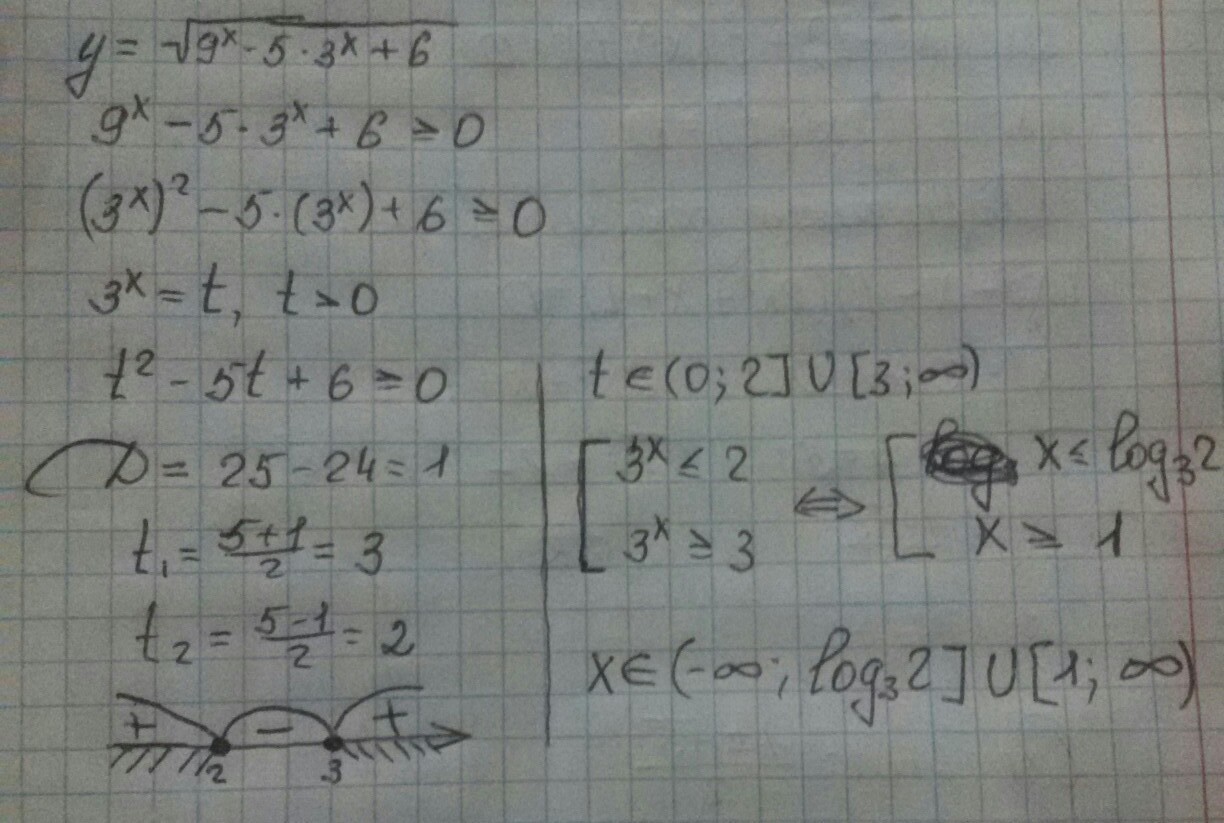 y = √(9ˣ - 5 · 3ˣ + 6)
9ˣ - 5 · 3ˣ + 6 ≥ 0
(3ˣ)² - 5 · (3ˣ) + 6 ≥ 0
3ˣ = t, t > 0
t² - 5t + 6 ≥ 0
D = 25 - 24 = 1
t₁ = (5+1)/2 = 3
t₂ = (5-1)/2 = 2
+ - +
2 3
t ∈ (0; 2] ∪ [3; ∞)
[ 3ˣ ≤ 2 ⇔ [ x ≤ log₃2
3ˣ ≥ 3 x ≥ 1
x ∈ (-∞; log₃2] ∪ [1; ∞)